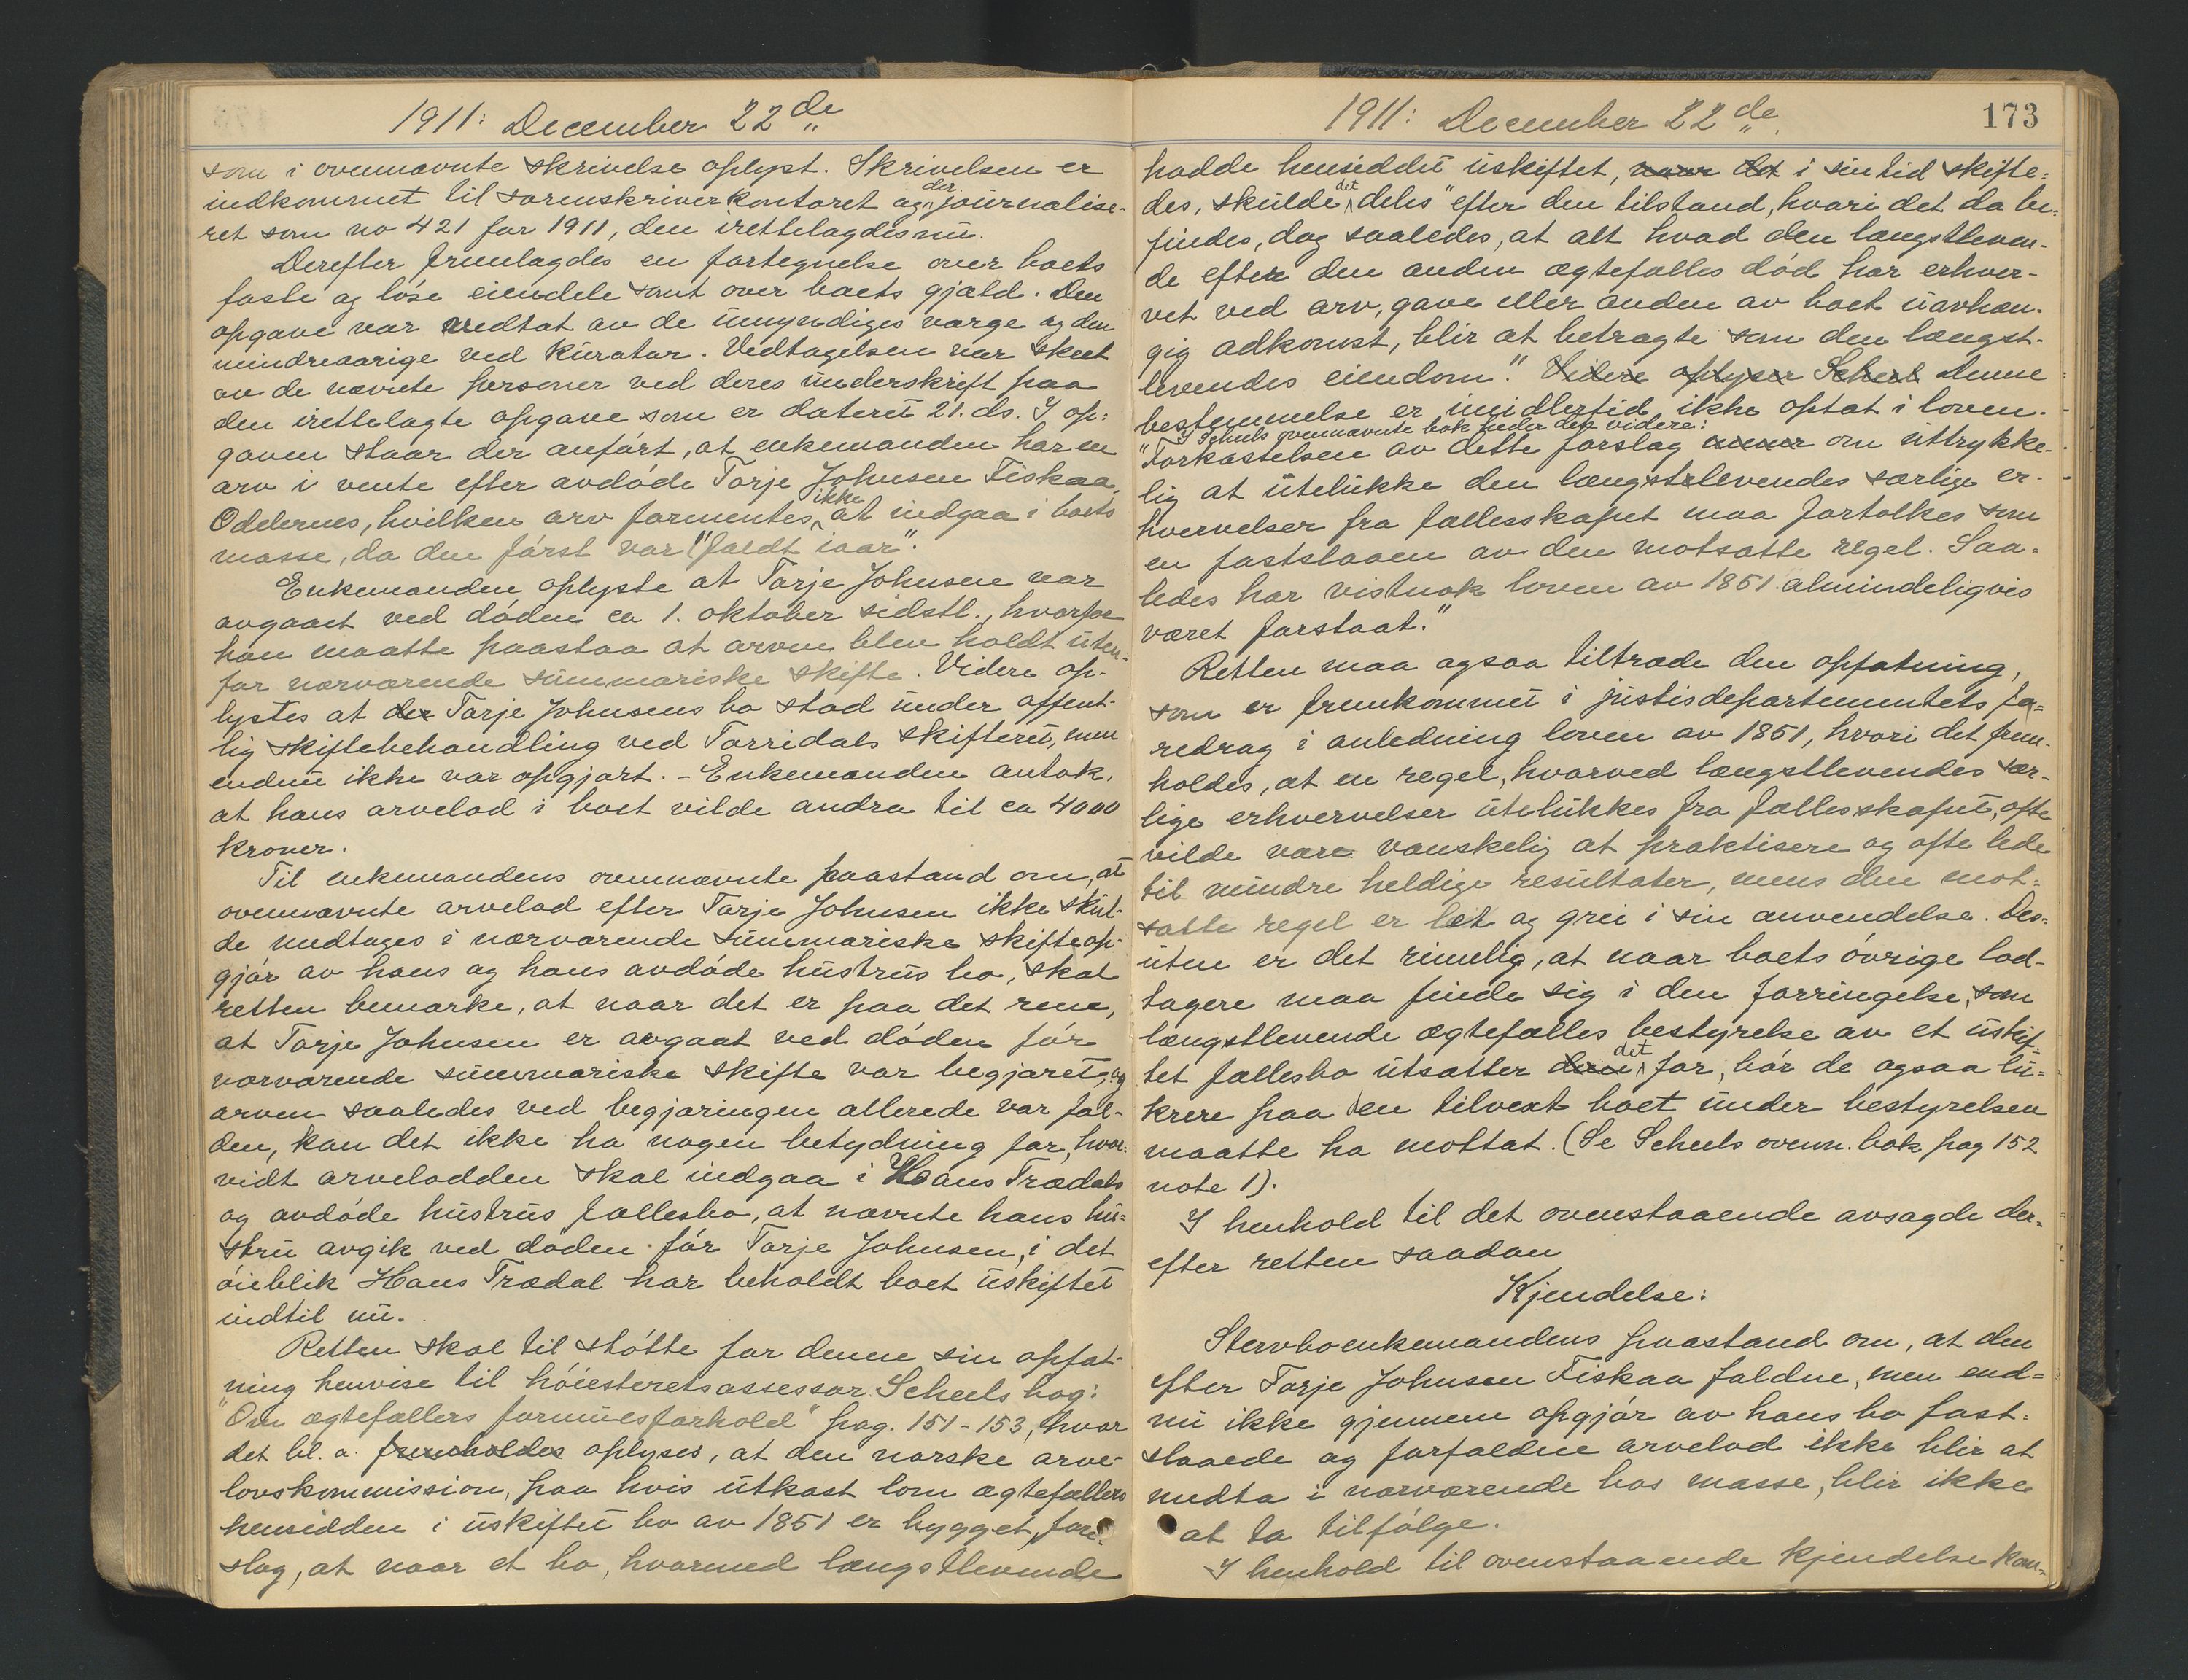 1911: December 22de
som i ovennævnte skrivelse oplyst. Skrivelsen er
indkommet til sorenskriverkontoret og der journalise-
ret som no 421 for 1911, den irettelagdes nu.
Derefter fremlagdes en fortegnelse over boets
faste og løse eiendele samt over boets gjæld. Den
opgave var vedtat av de umyndiges værge og den
mindreaarige ved kurator. Vedtagelsen var skeet
av de nævnte personer ved deres underskrift paa
den irettelagte opgave som er dateret 21. ds. I op-
gaven staar der anført, at enkemanden har en
arv i vente efter avdøde Torje Johnsen Fiskaa,
Oddernes, hvilken arv formentes ikke at indgaa i boets
masse, da den først var "faldt iaar".
Enkemanden oplyste at Torje Johnsen var
avgaaet ved døden ca 1. oktober sidstl., hvorfor
han maatte paastaa at arven blev holdt uten-
for nærværende summariske skifte. Videre op-
lystes at der Torje Johnsens bo stod under offent-
lig skiftebehandling ved Torridals skifteret, men
endnu ikke var opgjort. - Enkemanden antok,
at hans arvelod i boet vilde andra til ca 4000
kroner.
Til enkemandens ovennævnte paastand om, at
ovennævnte arvelod efter Torje Johnsen ikke skul-
de medtages i nærværende summariske skifteop-
gjør av hans og hans avdøde hustrus bo, skal
retten bemærke, at naar det er paa det rene,
at Torje Johnsen er avgaat ved døden før
nærværende summariske skifte var begjæret, og
arven saaledes ved begjæringen allerede var fal-
den, kan det ikke ha nogen betydning for, hvor-
vidt arvelodden skal indgaa i Hans Trædals
og avdøde hustrus fællesbo, at nævnte hans hu-
stru avgik ved døden før Torje Johnsen, i det
øieblik Hans Trædal har beholdt boet uskiftet
indtil nu.
Retten skal til støtte for denne sin opfat-
ning henvise til høiesteretsassessor Scheels bog:
"Om ægtefællers formuesforhold" pag. 151-153, hvor
det bl. a. fremholdes oplyses, at den norske arve-
lovskommission, paa hvis utkast lom ægtefællers
hensidden i uskiftet bo av 1851 er bygget, fore-
slog, at naar et bo, hvormed længstlevende
1911: December 22de.
173
hadde hensiddet uskiftet, naar det i sin tid skifte-
des, skulde det deles "efter den tilstand, hvori det da be-
findes, dog saaledes, at alt hvad den længstleven-
de efter den anden ægtefælles død har erhver-
vet ved arv, gave eller anden av boet uavhæn-
gig adkomst, blir at betragte som den længst-
levendes eiendom." Videre oplyser Scheel Denne
bestemmelse er imidlertid ikke optat i loven.
I Scheels ovennævnte bok heder det videre:
"Forkastelsen av dette forslag om uttrykke-
lig at utelukke den længstlevendes særlige er-
hvervelser fra fællesskapet maa fortolkes som
en fastslaaen av den motsatte regel. Saa-
ledes har vistnok loven av 1851 almindeligvis
været forstaat."
Retten maa ogsaa tiltræde den opfatning,
som er fremkommet i justisdepartementets fo-
redrag i anledning loven av 1851, hvori det frem-
holdes, at en regel, hvorved længstlevendes sær-
lige erhvervelser utelukkes fra fællesskapet, ofte
vilde være vanskelig at praktisere og ofte lede
til mindre heldige resultater, mens den mot-
satte regel er let og grei i sin anvendelse. Des-
uten er det rimelig, at naar boets øvrige lod-
tagere maa finde sig i den forringelse, som
længstlevende ægtefælles bestyrelse av et uskif-
tet fællesbo utsætter den det for, bør de ogsaa lu-
krere paa den tilvext boet under bestyrelsen
maatte ha mottat. (Se Scheels ovenn. bok pag 152
note 1).
I henhold til det ovenstaaende avsagde der-
efter retten saadan
Kjendelse:
Stervboenkemandens paastand om, at den
efter Torje Johnsen Fiskaa faldne, men end-
nu ikke gjennem opgjør av hans bo fast-
slaaede og forfaldne arvelod ikke blir at
medta i nærværende bos masse, blir ikke
at ta tilfølge.
I henhold til ovenstaaende kjendelse kom-